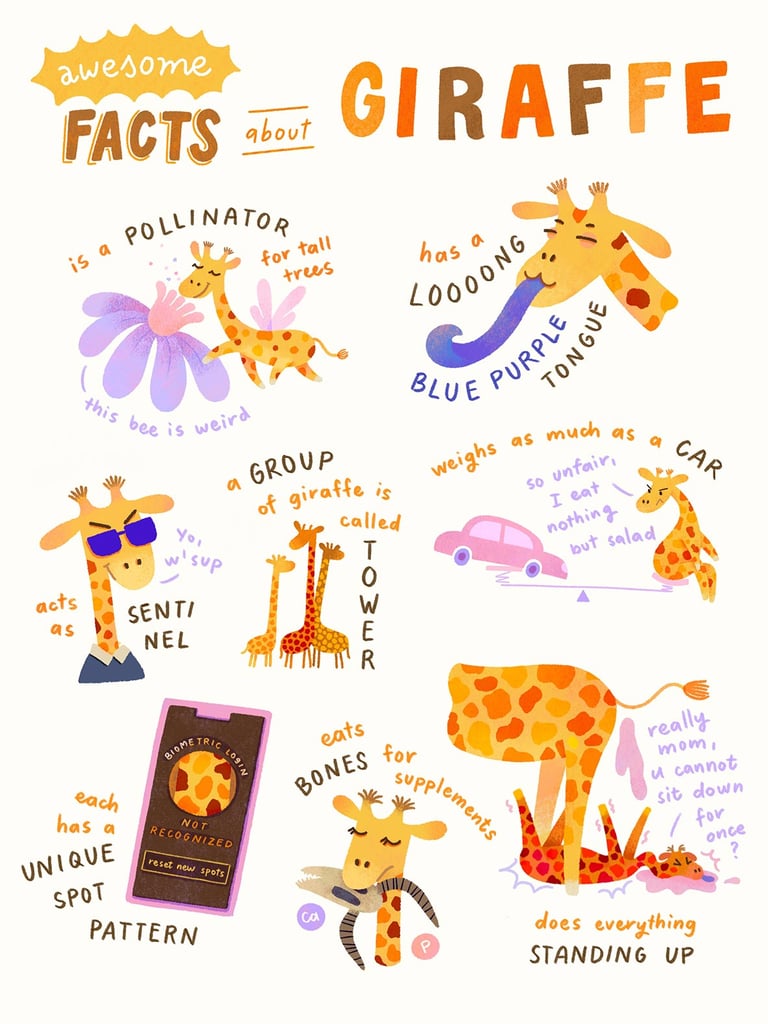 awesome
FACTS about GIRAFFE
is a POLLINATOR
for tall
trees
this bee is weird
has a
LOOOONG
BLUE PURPLE
TONGUE
yo,
w'sup
acts
as
SENTI
NEL
a GROUP
of giraffe is
called
TOWER
weighs as much as a CAR
so unfair,
I eat
nothing
but salad
each
has a
UNIQUE
SPOT
PATTERN
BIOMETRIC LOGIN
NOT
RECOGNIZED
reset new spots
eats
BONES for
supplements
Ca
P
really
mom,
u cannot
sit down
for
once
?
does everything
STANDING UP